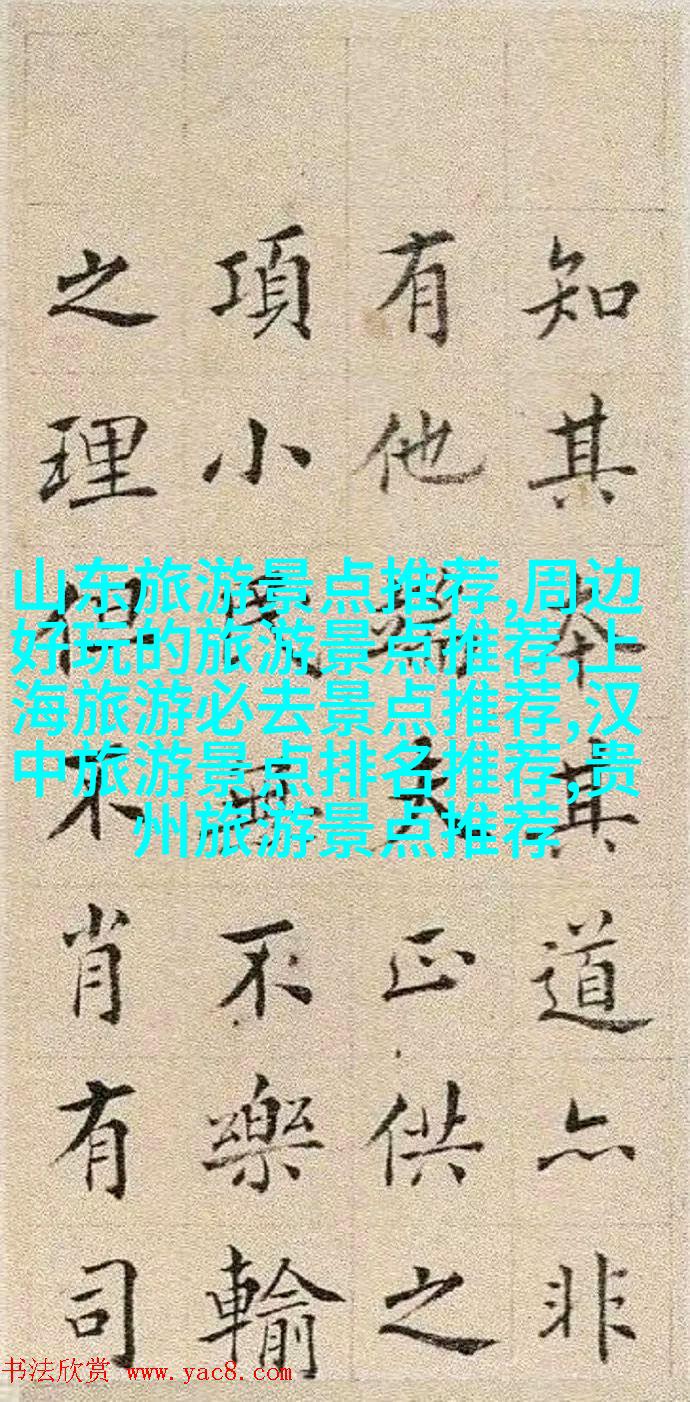 知其本其道亦非
有他夫正供之
項小民無不樂輸
之理但不肖有司
山东旅游景点推荐,周边
好玩的旅游景点推荐,上
海旅游必去景点推荐,汉
中旅游景点排名推荐,贵
州旅游景点推荐
书法欣赏 www.yac8.com